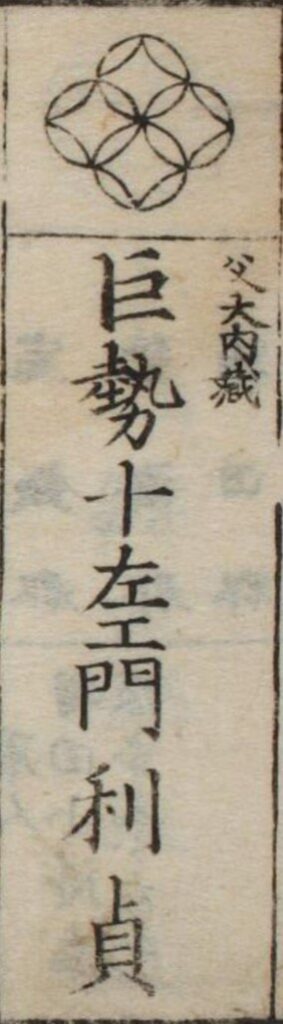 父大内蔵
巨勢十左エ門利貞